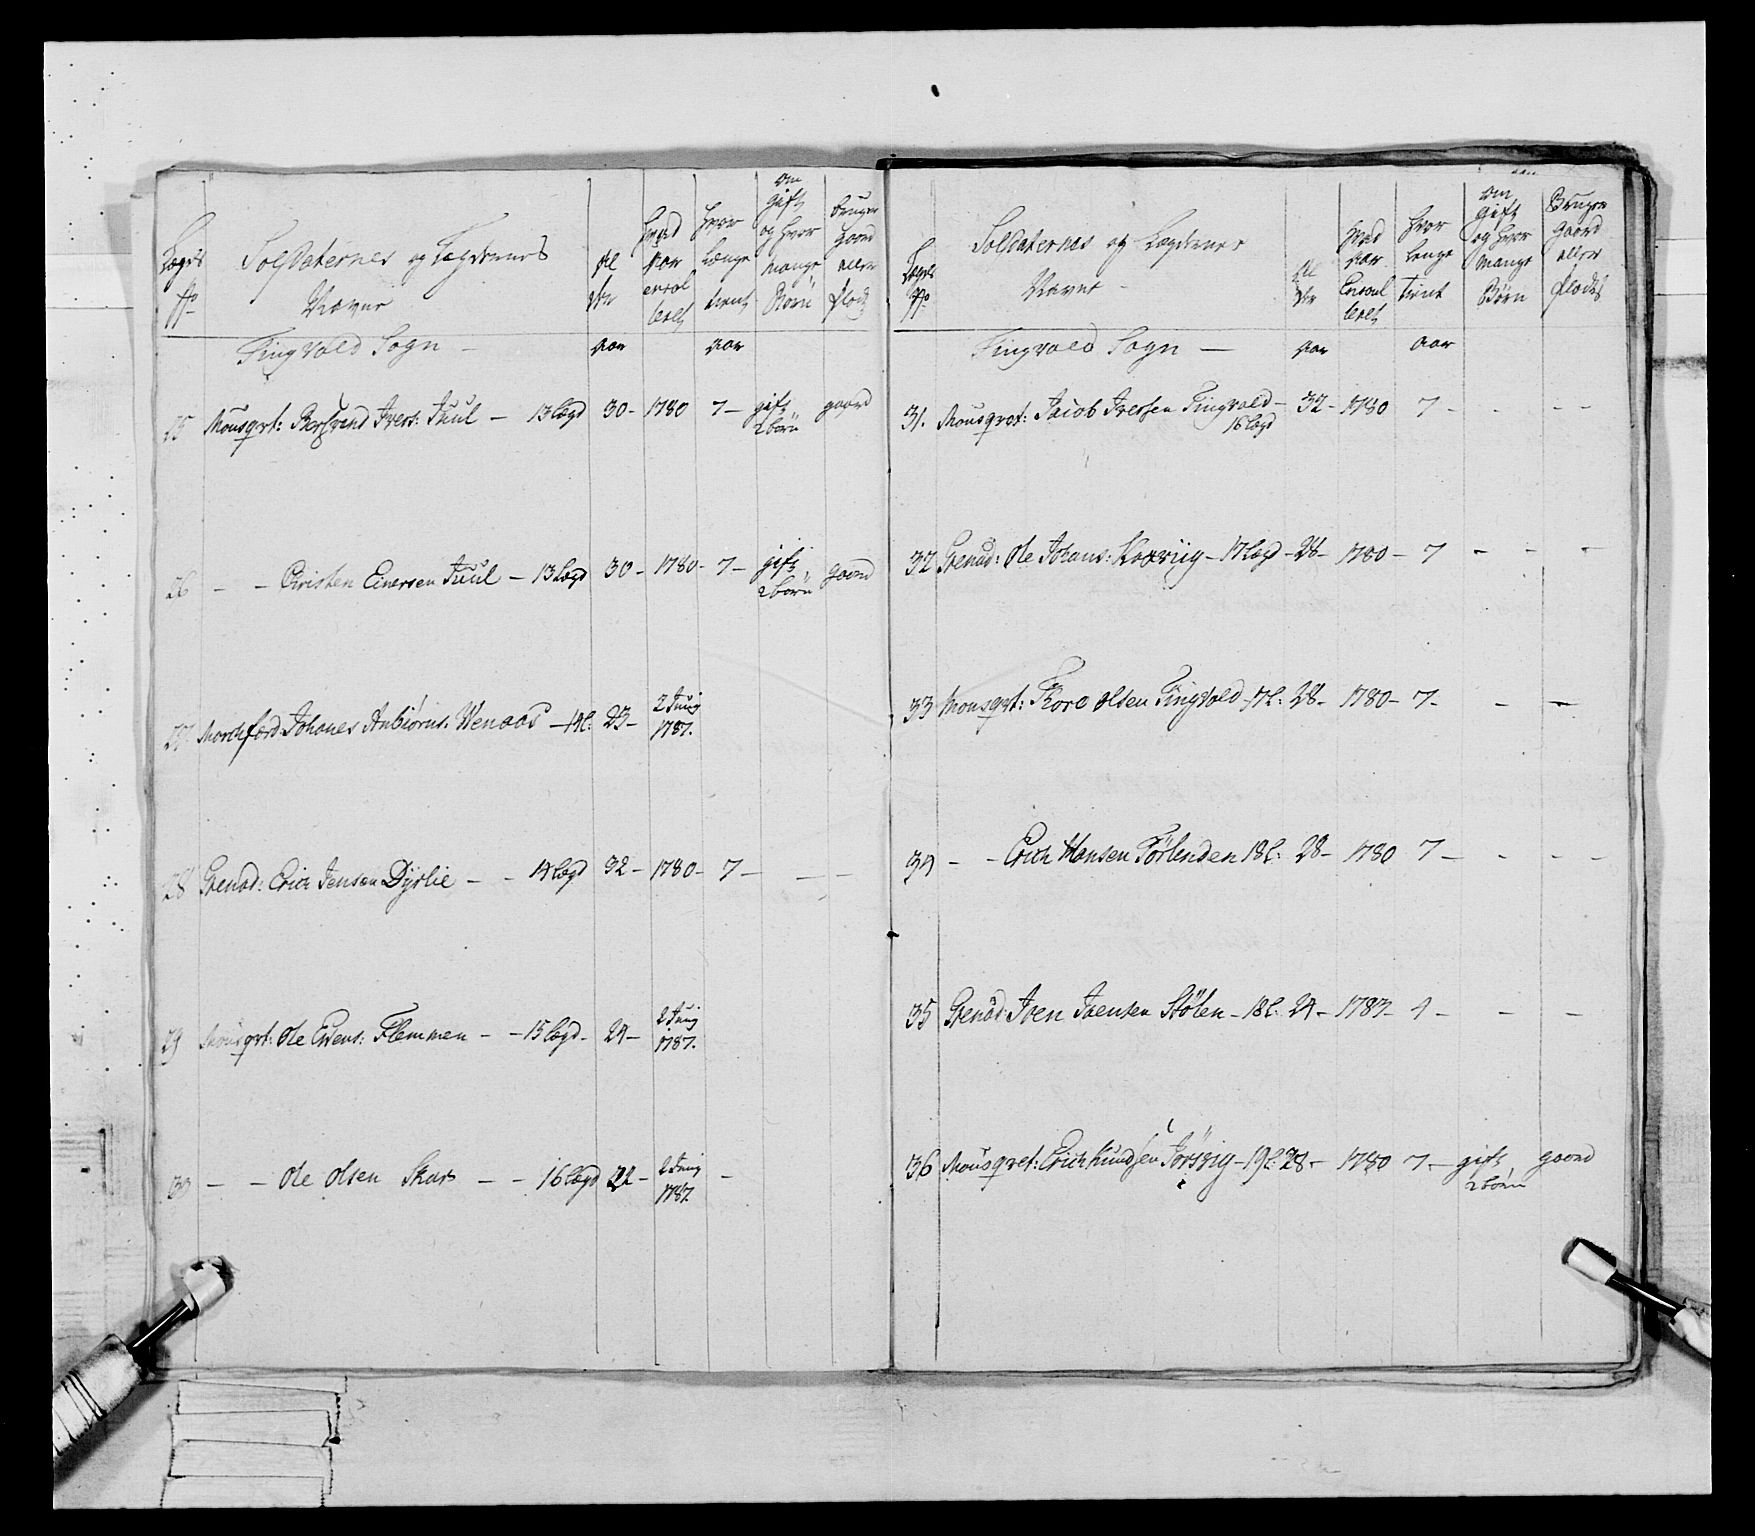 Soldaternes og Lægdernes
Navne
Al
der
hvad
Aar
enrol
leret
hvor
længe
tient
om
gift
og hvor
mange
Børn
bruger
gaard
eller
plads
Tingvold Sogn —
aar
aar
25 Mousqrt: Ivers: Juul — 13 Lægd 30 – 1780 7 – gift gaard
2 børn
26 – – Christen Einersen Juul – 13 Lægd 30 – 1780 – 7 – gift gaard
2 børn
27 Johanes Anbiørns: Wenaas – 14 L: 23 – 2 Junij
1787.
28 Grenad: Erich Jensen Dyrlie – – 14 Lægd 32 – 1780 – 7 – – –
29 Mousqrt: Ole Evens: Flemmen – – 15 Lægd – 24 – 2 Junij
1787.
30 – – Ole Olsen Skar – – 16 Lægd 22 – 2 Junij –
1787.
Soldaternes og Lægdernes
Navne –
Al
der
hvad
aar
Enroul
leret
hvor
lenge
tient
om
gift
og hvor
mange
Børn
Bruger
gaard
eller
plads
Tingvold Sogn —
aar
aar
31. Mousqret: Jacob Iversen Tingvold – 32 – 1780 7 – – – –
16 Lægd
32 Grenad: Ole Johans: – 17 Lægd – 28 – 1780 – 7 – – –
33 Mousqrt: Thore Olsen Tingvold – 17 L: 28 – 1780 – 7 – – –
34 – – Erich Hansen Tørlenden 18 L: 28 – 1780 7 – – – –
35 Grenad: Iver Iversen Stølen – 18 L: 24 – 1783 – 4 – – –
36 Mousqret: Erich Knudsen – 19 L: 28 – 1780 7 – gift, gaard
2 børn